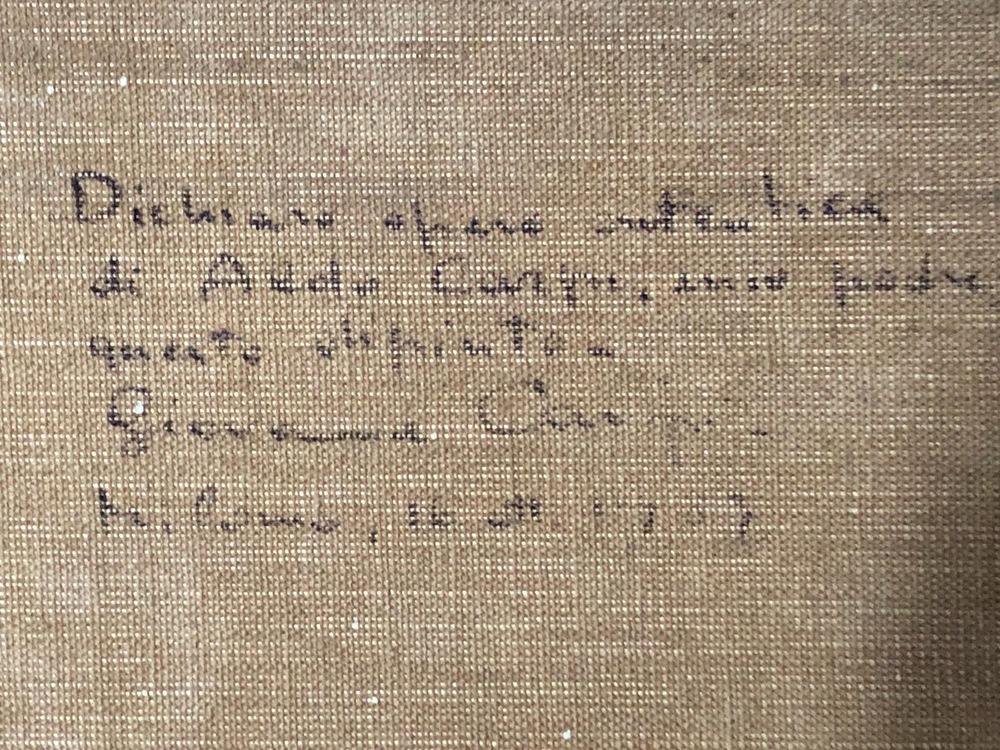 Dichiaro opera autentica
di Aldo Carpi, mio padre,
questo dipinto.
Giovanna Carpi.
Milano, 16